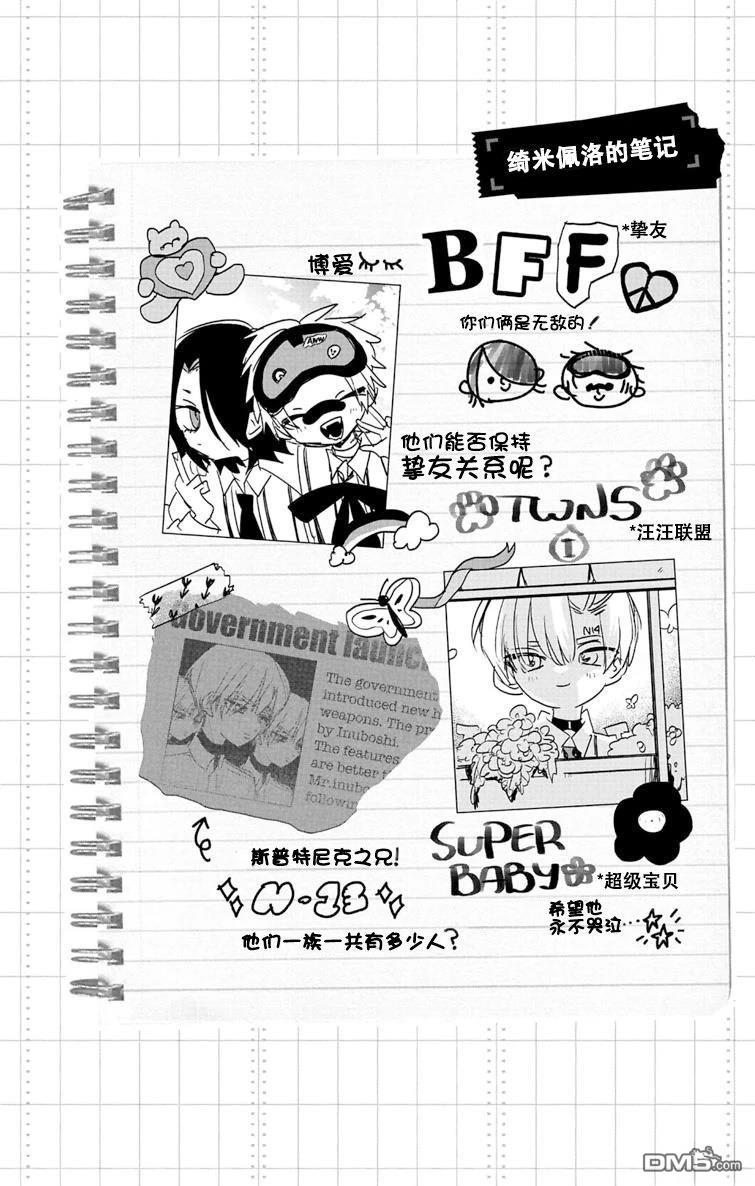 绮米佩洛的笔记
BFF
*挚友
博爱
你们俩是无敌的！
他们能否保持
挚友关系呢？
TWNS
*汪汪联盟
I
N14
Government launc
The government
introduced new h
weapons. The pr
by Inuboshi.
The features
are better t
Mr.inubo
followin
斯普特尼克之兄！
他们一族一共有多少人？
SUPER
BABY
*超级宝贝
希望他
永不哭泣…
DM5.com